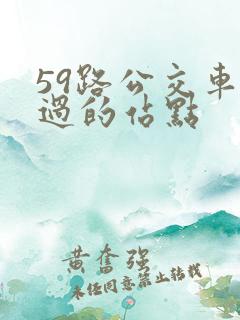 59路公交車
過的佔點
黄奮强
未任同意禁止转载